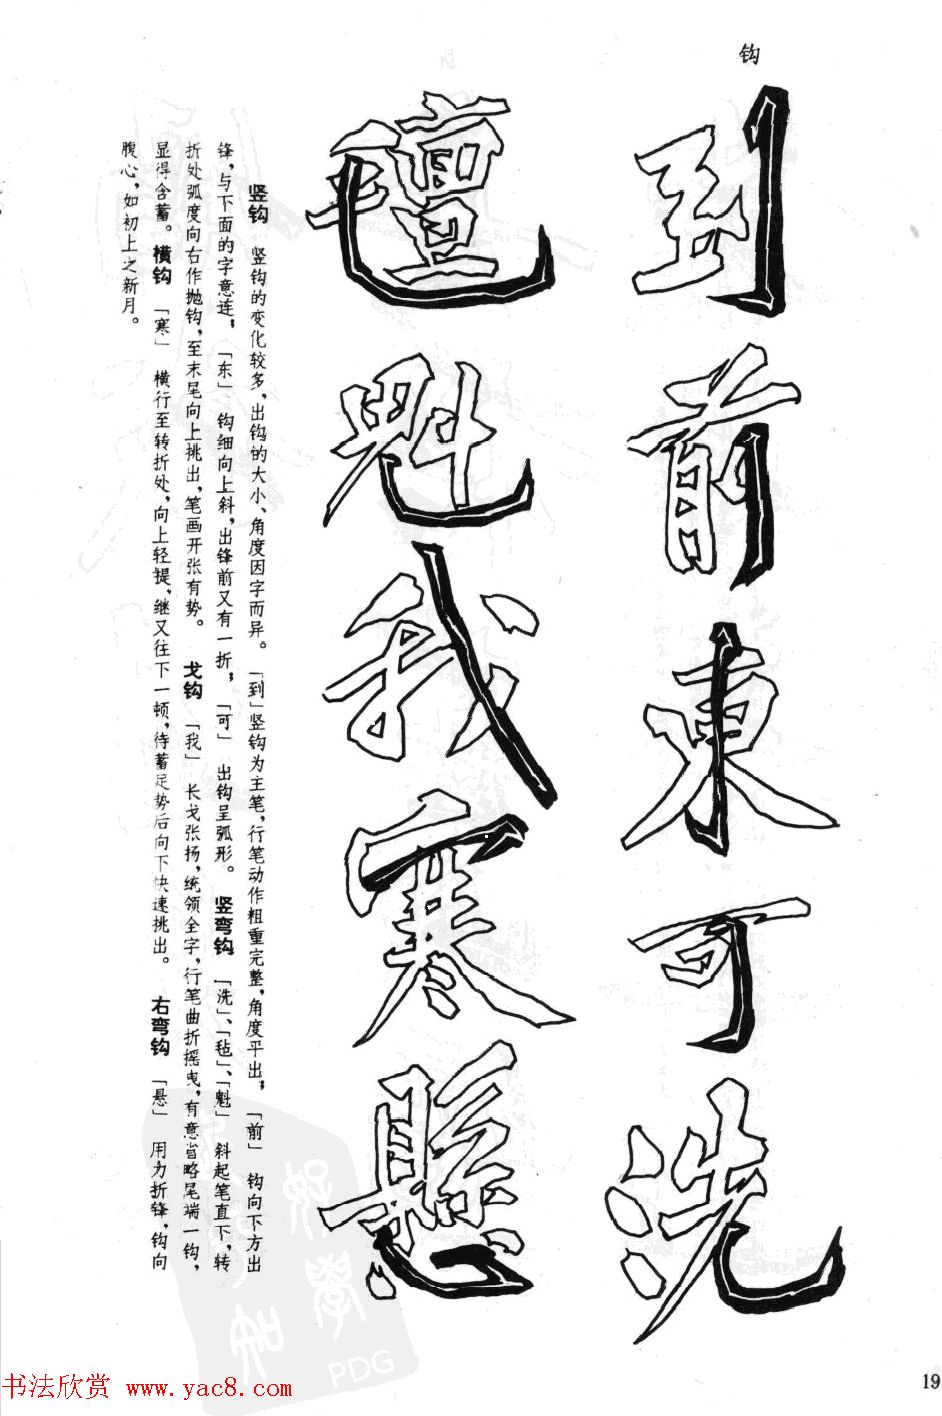 钩
到前東可洗
氊魁我寒懸
竖钩　竖钩的变化较多，出钩的大小、角度因字而异。「到」竖钩为主笔，行笔动作粗重完整，角度平出；「前」　钩向下方出
锋，与下面的字意连；「东」　钩细向上斜，出锋前又有一折；「可」　出钩呈弧形。　竖弯钩　「洗」、「毡」、「魁」　斜起笔直下，转
折处弧度向右作抛钩，至末尾向上挑出，笔画开张有势。　戈钩　「我」　长戈张扬，统领全字，行笔曲折摇曳，有意省略尾端一钩，
显得含蓄。　横钩　「寒」　横行至转折处，向上轻提，继又往下一顿，待蓄足势后向下快速挑出。　右弯钩　「悬」　用力折锋，钩向
腹心，如初上之新月。
PDG
书法欣赏 www.yac8.com
19